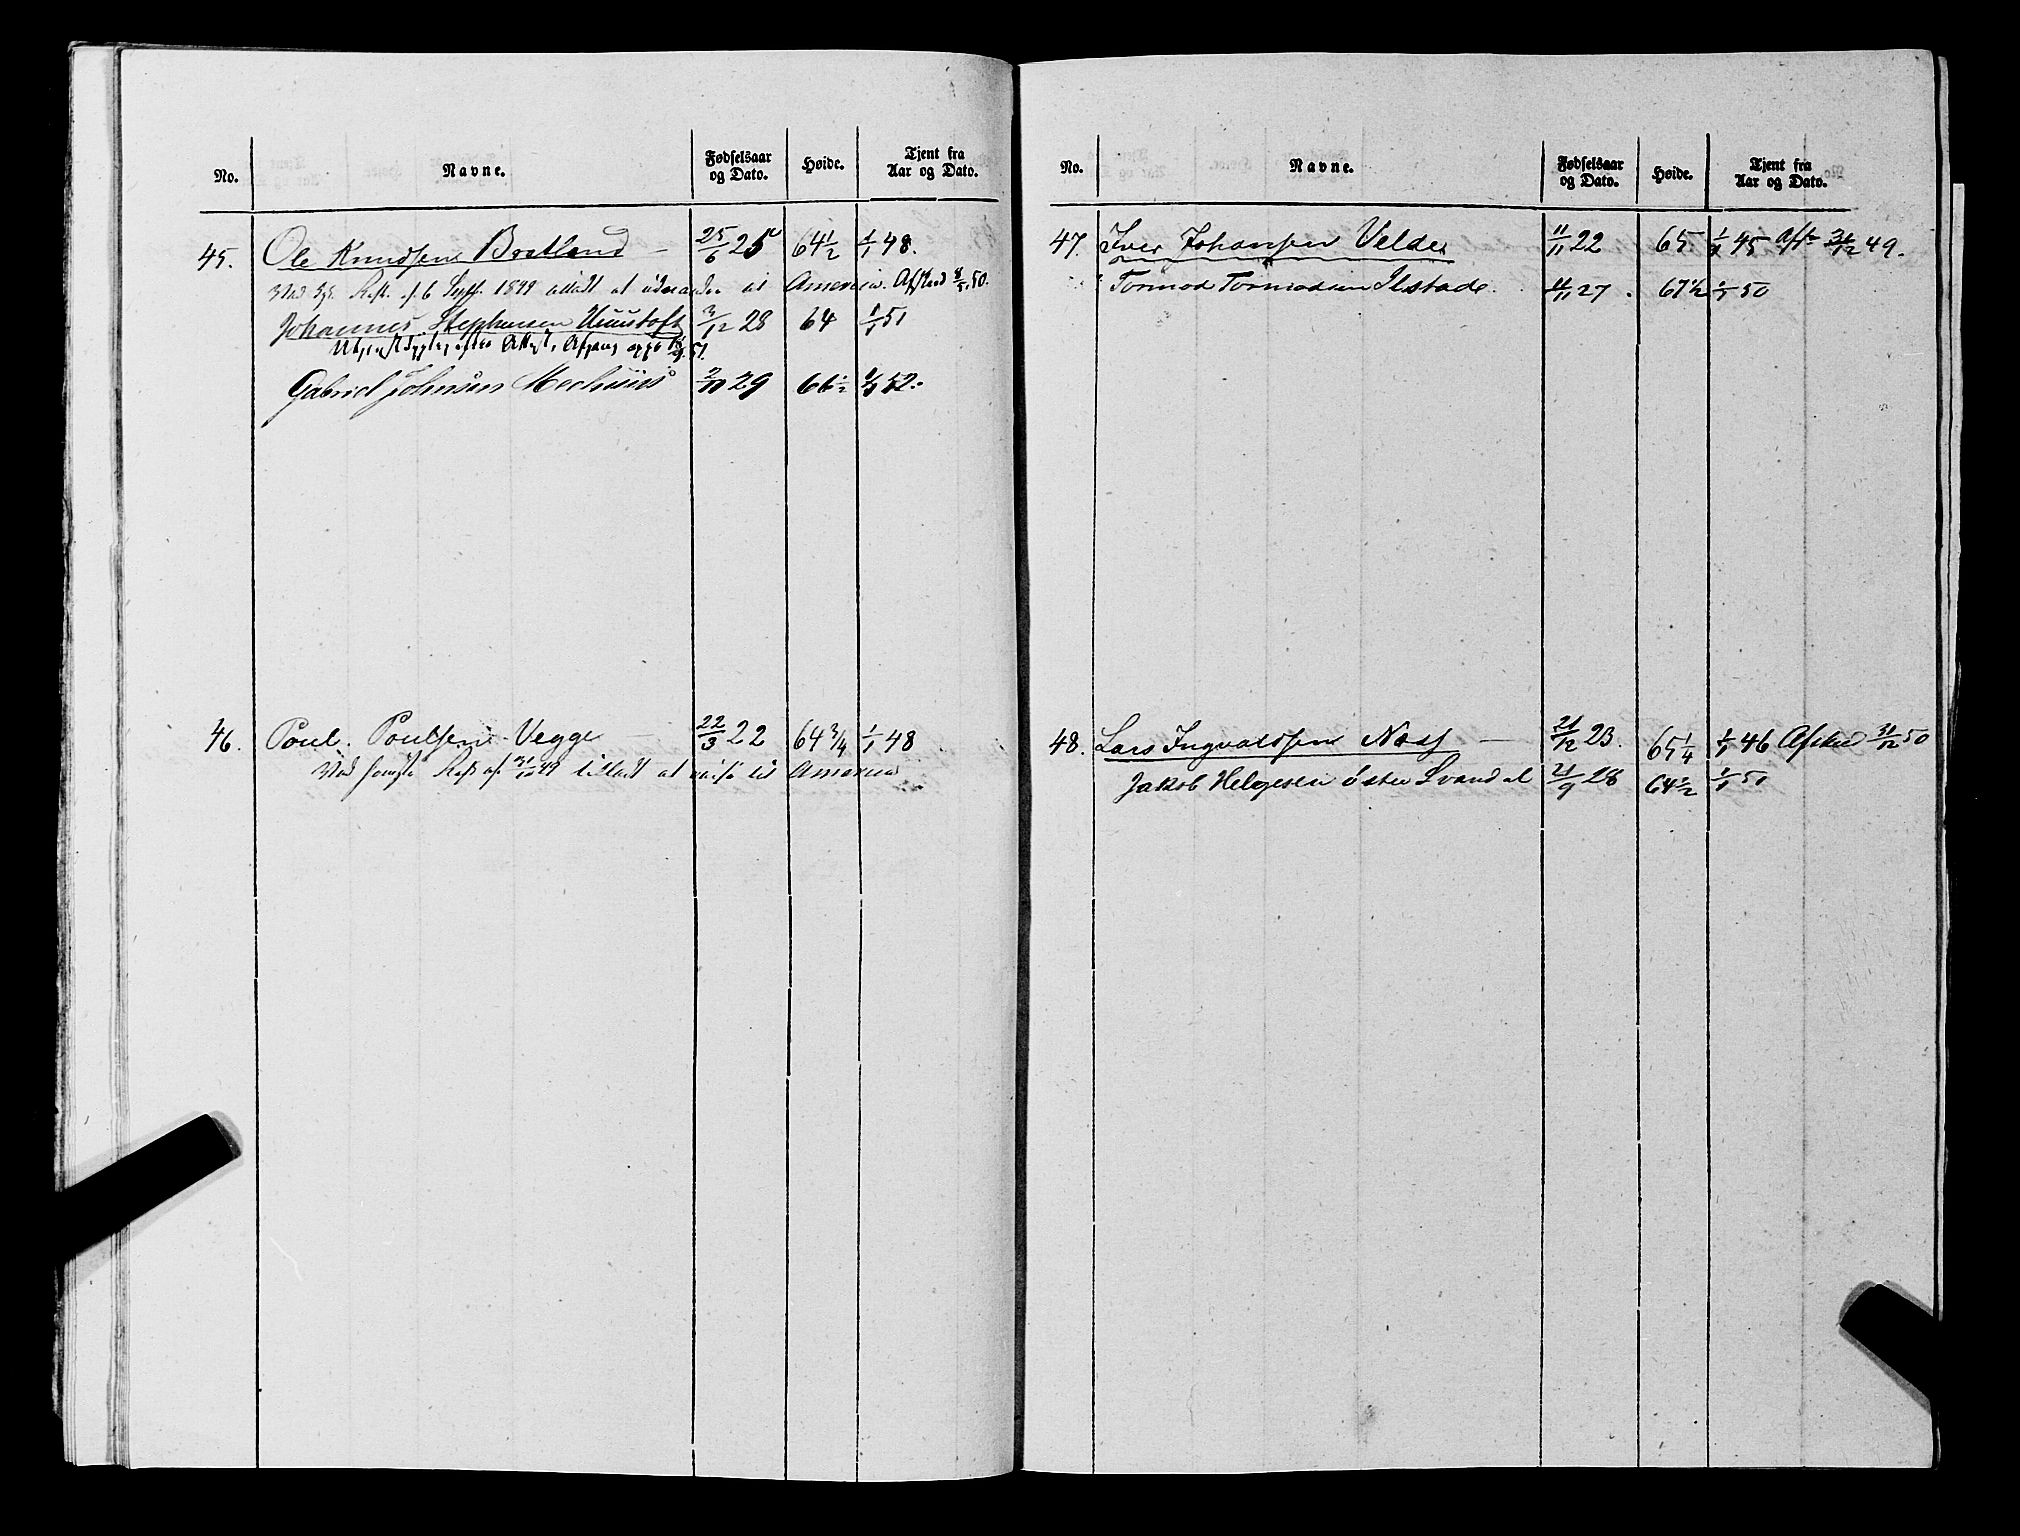 No. Navne. Fødselsaar og Dato. Høide. Tjent fra Aar og Dato.
45. Ole Knudsen Bratland – 25/6 25 64 1/2 1/1 48.
Ved Rest. af 6 Sept. 1849 tilladt at udvandre til America. Afskeed 8/5 50.
Johannes Stephensen 3/12 28 64 1/1 51
Afgang 51.
Gabriel Johnsen 2/10 29 66 1/2 1/1 52.
46. Poul Poulsen Vegge – 22/3 22 64 3/4 1/1 48
Ved Rest af 31/10 49 tilladt at reise til America
No. Navne. Fødselsaar og Dato. Høide. Tjent fra Aar og Dato.
47. Iver Johansen Velde 11/11 22 65 1/1 45 Afsk 31/12 49.
Tormod Tormodsen Ilstade. 11/11 27. 67 1/2 1/1 50
48. Lars Ingvaldsen Næss – 21/12 23. 65 1/4 1/1 46 Afsked 31/12 50
Jakob Helgesen Østre Svandal 21/9 28 64 1/2 1/1 50